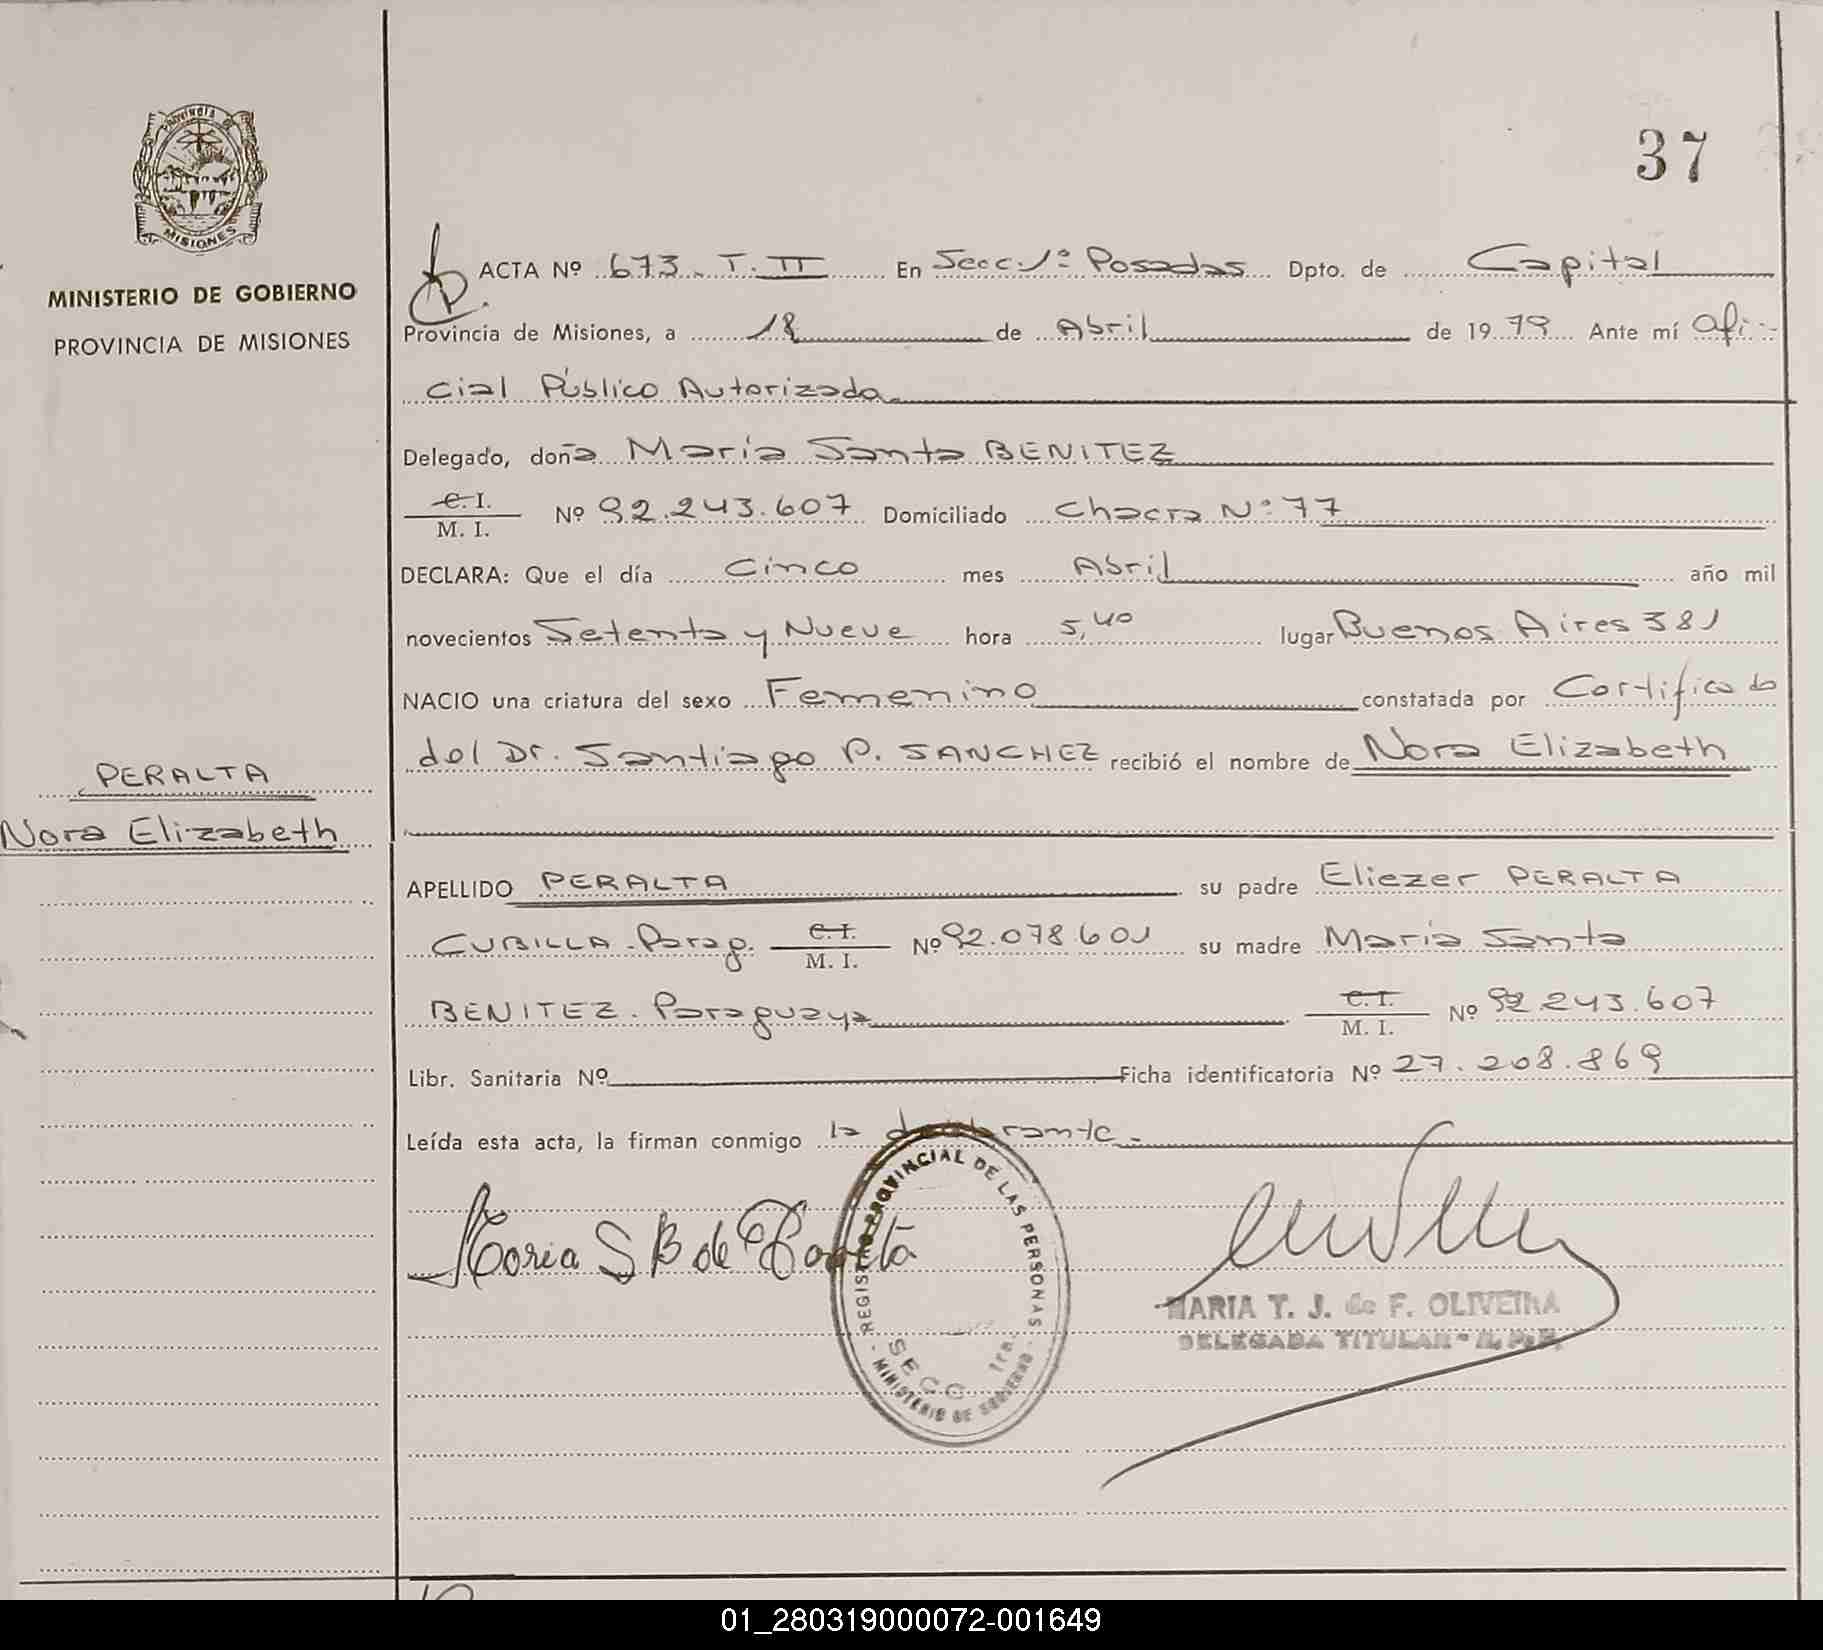 37
Provincia de
MISIONES
MINISTERIO DE GOBIERNO
PROVINCIA DE MISIONES
ACTA Nº 673. T. II En Secc. 1º Posadas Dpto. de Capital
Provincia de Misiones, a 18 de Abril de 1979 Ante mí Ofi-
cial Público Autorizada
Delegado, doña María Santa BENITEZ
C. I.
M. I. Nº 92.243.607 Domiciliado Chacra Nº 77
DECLARA: Que el día Cinco mes Abril año mil
novecientos Setenta y Nueve hora 5,40 lugar Buenos Aires 381
NACIO una criatura del sexo Femenino constatada por Certificado
del Dr. Santiago P. SANCHEZ recibió el nombre de Nora Elizabeth
PERALTA
Nora Elizabeth
APELLIDO PERALTA su padre Eliezer PERALTA
CUBILLA. Parag. C. I.
M. I. Nº 92.078.601 su madre María Santa
BENITEZ. Paraguaya C. I.
M. I. Nº 92.243.607
Libr. Sanitaria Nº Ficha identificatoria Nº 27.208.869
Leída esta acta, la firman conmigo la declarante.
Maria S B de
REGISTRO PROVINCIAL DE LAS PERSONAS
SECC. 1ra.
- MINISTERIO DE GOBIERNO -
MARIA T. J. de F. OLIVEIRA
DELEGADA TITULAR - R. P. P.
01_280319000072-001649